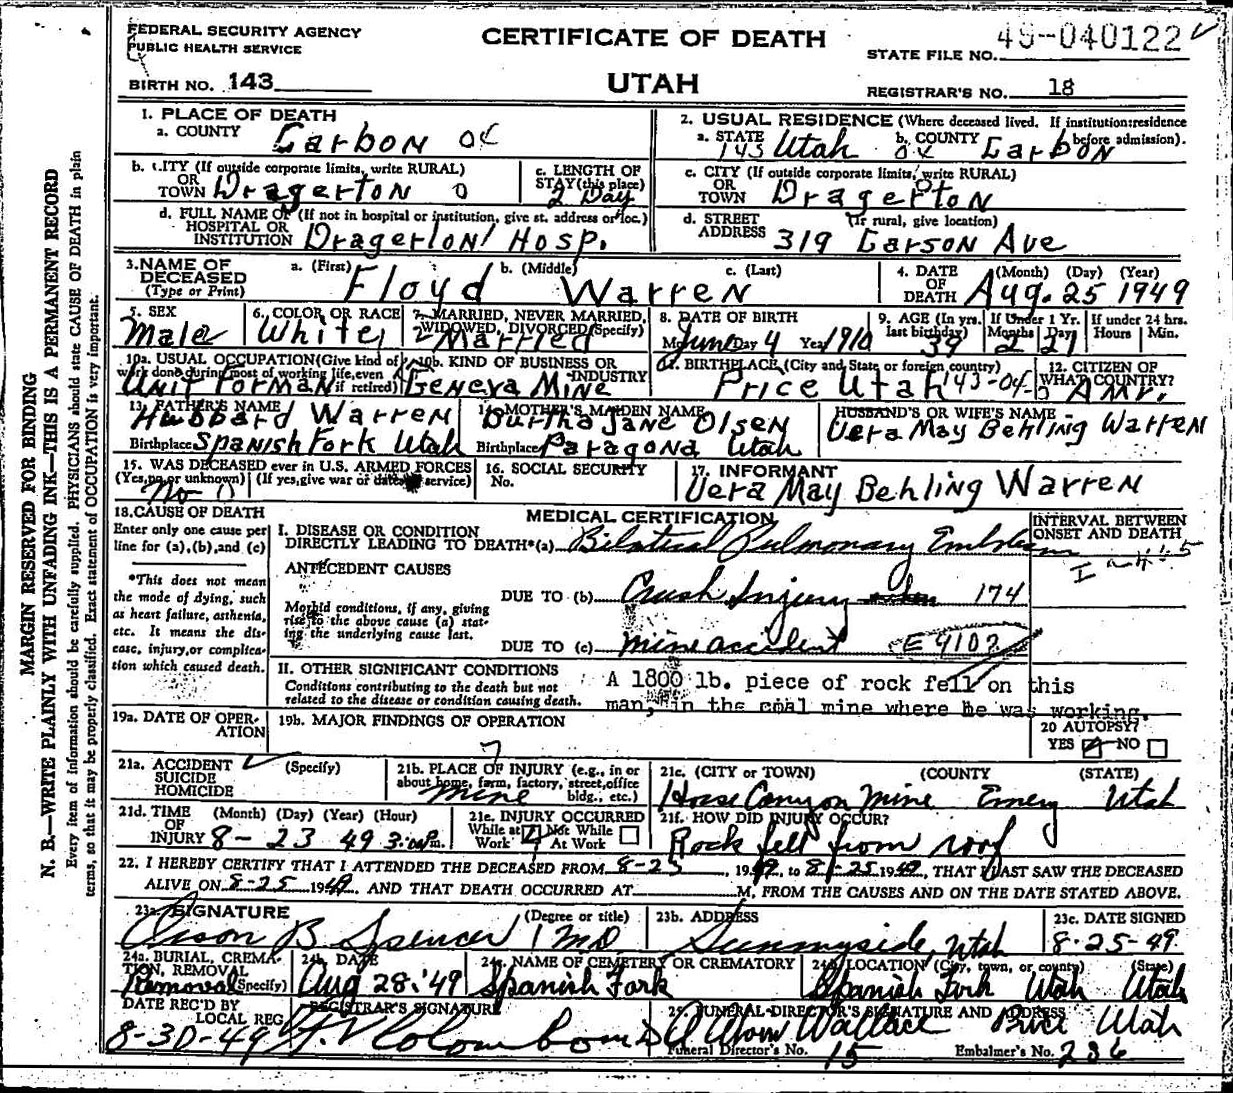 FEDERAL SECURITY AGENCY
PUBLIC HEALTH SERVICE
CERTIFICATE OF DEATH
STATE FILE NO. 49-040122
BIRTH NO. 143
UTAH
REGISTRAR'S NO. 18
MARGIN RESERVED FOR BINDING
N. B.—WRITE PLAINLY WITH UNFADING INK—THIS IS A PERMANENT RECORD
Every item of information should be carefully supplied. PHYSICIANS should state CAUSE OF DEATH in plain
terms, so that it may be properly classified. Exact statement of OCCUPATION is very important.
1. PLACE OF DEATH
a. COUNTY Carbon 04
2. USUAL RESIDENCE (Where deceased lived. If institution: residence before admission).
a. STATE 143 Utah b. COUNTY 04 Carbon
b. CITY (If outside corporate limits, write RURAL)
OR TOWN Dragerton 0
c. LENGTH OF STAY (this place) 2 Day
c. CITY (If outside corporate limits, write RURAL)
OR TOWN Dragerton
d. FULL NAME OF (If not in hospital or institution, give st. address or loc.)
HOSPITAL OR INSTITUTION Dragerton Hosp.
d. STREET (If rural, give location)
ADDRESS 319 Carson Ave
3. NAME OF DECEASED (Type or Print)
a. (First) b. (Middle) c. (Last)
Floyd Warren
4. DATE OF DEATH (Month) (Day) (Year)
Aug. 25 1949
5. SEX Male
6. COLOR OR RACE White
7. MARRIED, NEVER MARRIED, WIDOWED, DIVORCED (Specify) 2 Married
8. DATE OF BIRTH
Mo June Day 4 Year 1910
9. AGE (In yrs. last birthday) 39
If Under 1 Yr. Months 2 Days 21
If under 24 hrs. Hours Min.
10a. USUAL OCCUPATION (Give kind of work done during most of working life, even if retired) Unit Forman
10b. KIND OF BUSINESS OR INDUSTRY Geneva Mine
11. BIRTHPLACE (City and State or foreign country)
Price Utah 143-04-
12. CITIZEN OF WHAT COUNTRY? Amr.
13. FATHER'S NAME Hubbard Warren
Birthplace Spanish Fork Utah
14. MOTHER'S MAIDEN NAME Burtha Jane Olsen
Birthplace Paragona Utah
HUSBAND'S OR WIFE'S NAME
Vera May Behling Warren
15. WAS DECEASED ever in U.S. ARMED FORCES
(Yes, no, or unknown) (If yes, give war or dates of service)
No 0
16. SOCIAL SECURITY No.
17. INFORMANT
Vera May Behling Warren
18. CAUSE OF DEATH
Enter only one cause per line for (a), (b), and (c)
*This does not mean the mode of dying, such as heart failure, asthenia, etc. It means the disease, injury, or complication which caused death.
MEDICAL CERTIFICATION
INTERVAL BETWEEN ONSET AND DEATH
I. DISEASE OR CONDITION DIRECTLY LEADING TO DEATH* (a) Bilateral Pulmonary Embolism
ANTECEDENT CAUSES
Morbid conditions, if any, giving rise to the above cause (a) stating the underlying cause last.
DUE TO (b) Crush Injury 174
DUE TO (c) mine accident E 9102
II. OTHER SIGNIFICANT CONDITIONS
Conditions contributing to the death but not related to the disease or condition causing death.
A 1800 lb. piece of rock fell on this
man, in the coal mine where he was working.
19a. DATE OF OPERATION
19b. MAJOR FINDINGS OF OPERATION
7
20 AUTOPSY?
YES NO
21a. ACCIDENT SUICIDE HOMICIDE (Specify)
21b. PLACE OF INJURY (e.g., in or about home, farm, factory, street, office bldg., etc.) mine
21c. (CITY or TOWN) (COUNTY) (STATE)
Horse Canyon Mine Emery Utah
21d. TIME OF INJURY (Month) (Day) (Year) (Hour)
8- 23 49 3:00 P m.
21e. INJURY OCCURRED
While at Work Not While At Work
21f. HOW DID INJURY OCCUR?
Rock fell from roof
22. I HEREBY CERTIFY THAT I ATTENDED THE DECEASED FROM 8-23, 1949, to 8-25-1949, THAT I LAST SAW THE DECEASED
ALIVE ON 8-25 1949, AND THAT DEATH OCCURRED AT M, FROM THE CAUSES AND ON THE DATE STATED ABOVE.
23a. SIGNATURE (Degree or title)
Orson B Spencer MD
23b. ADDRESS
Sunnyside, Utah
23c. DATE SIGNED
8-25-49
24a. BURIAL, CREMATION, REMOVAL (Specify) Removal
24b. DATE Aug 28 '49
24c. NAME OF CEMETERY OR CREMATORY
Spanish Fork
24d. LOCATION (City, town, or county) (State)
Spanish Fork Utah Utah
DATE REC'D BY LOCAL REG.
8-30-49
REGISTRAR'S SIGNATURE
Colombo MD
25. FUNERAL DIRECTOR'S SIGNATURE AND ADDRESS
Wallace Price Utah
Funeral Director's No. 15 Embalmer's No. 286